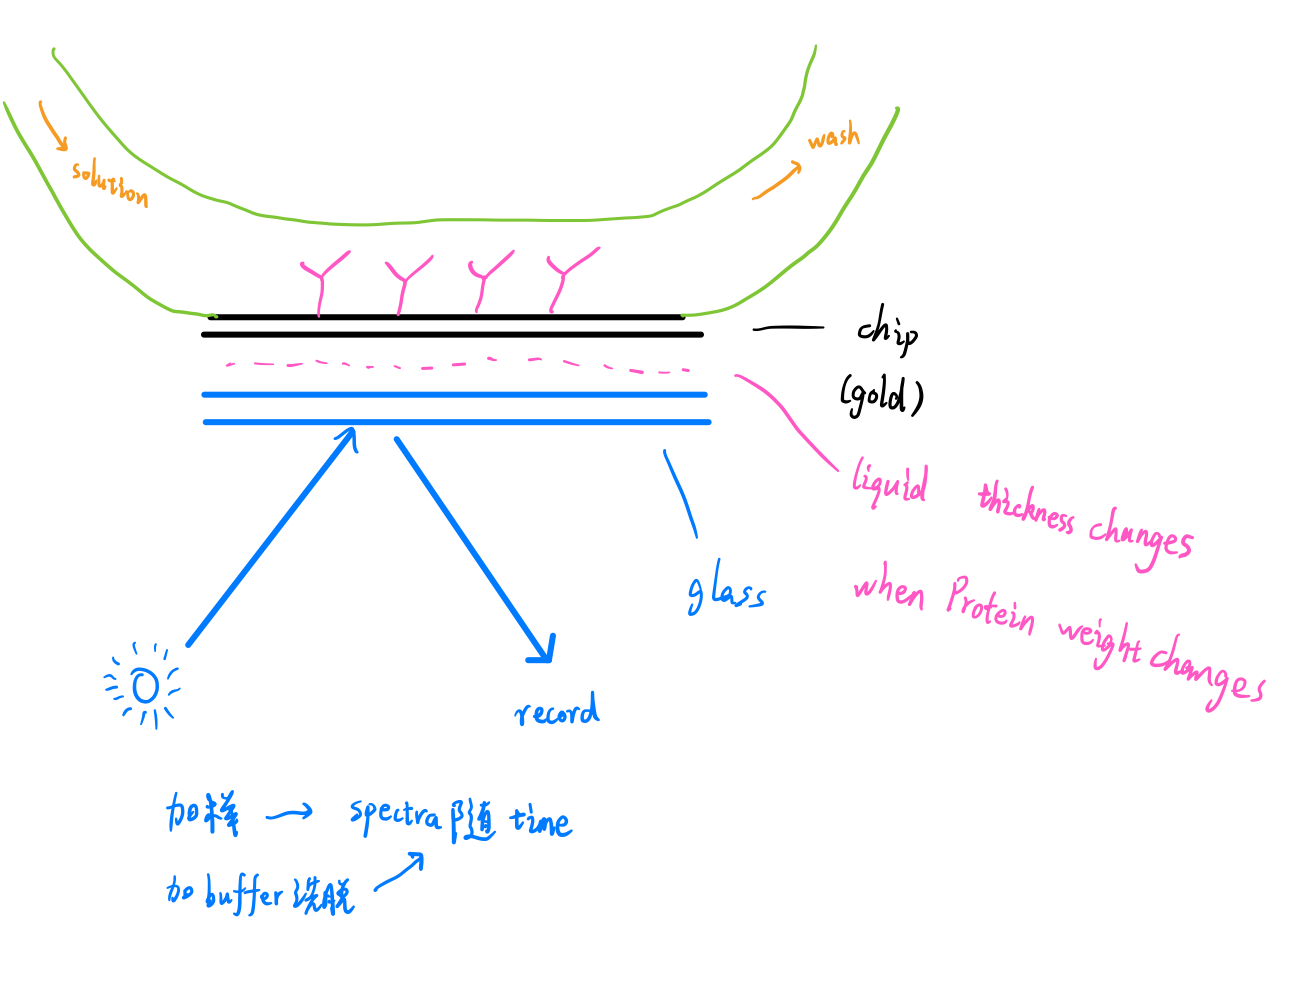 solution
wash
chip
(gold)
liquid thickness changes
when Protein weight changes
glass
record
加样 → spectra 随 time
加 buffer 洗脱